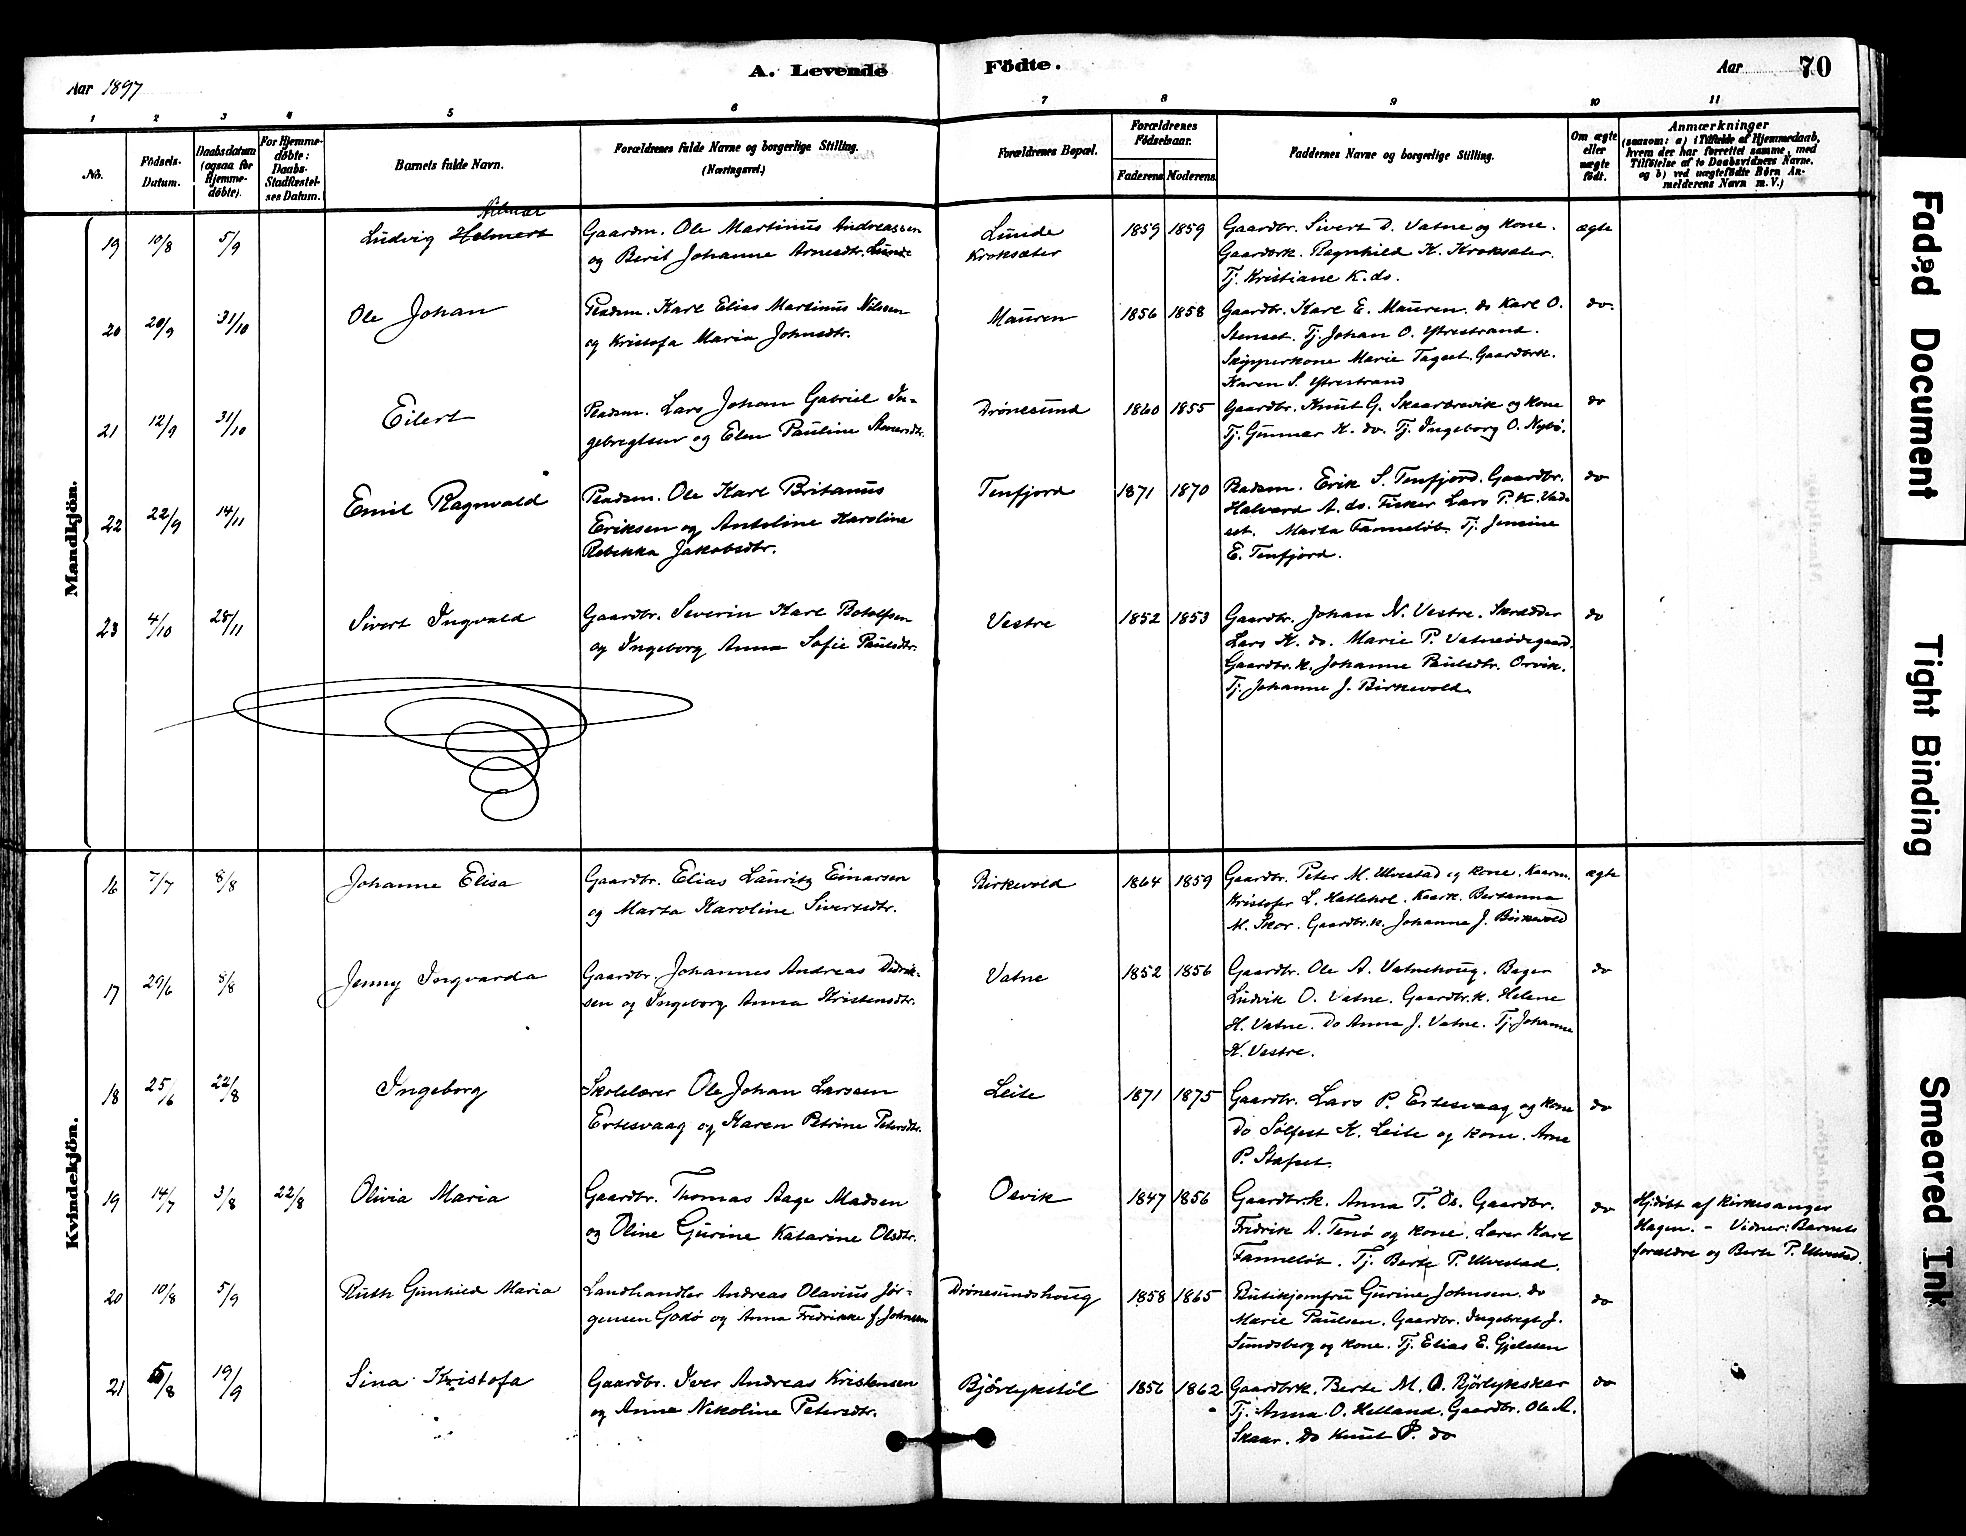 Aar 1897
A. Levende
Födte.
Aar
70
1 2 3 4 5 6 7 8 9 10 11
No.
Födsels-
Datum.
Daabsdatum
(ogsaa for
Hjemme-
døbte).
For Hjemme-
døbte:
Daabs-
Stadfæstel-
ses Datum.
Barnets fulde Navn.
Forældrenes fulde Navne og borgerlige Stilling.
(Næringsvei.)
Forældrenes Bopæl.
Forældrenes
Födselsaar.
Faderens Moderens
Faddernes Navne og borgerlige Stilling.
Om ægte
eller
uægte
födt.
Anmærkninger
(saasom: a) i Tilfælde af Hjemmedaab,
hvem der har forrettet samme, med
Tilföielse af to Daabsvidners Navne,
og b) ved uægtefödte Börn An-
melderens Navn m. V.)
Mandkjön.
19 10/8 5/9
Ludvig Helmert
Gaardm. Ole Martinus Andreassen
og Berit Johanne Arnesdtr. Lunde
Lunde
Kroksæter
1859 1859
Gaardbr. Sivert D. Vatne og kone.
Gaardbrk. Ragnhild K. Kroksæter.
Tj. Kristiane K. do.
ægte
20 20/9 31/10
Ole Johan
Pladsm. Karl Elias Martinus Nilsen
og Kristofa Maria Johnsdtr.
Mauren
1856 1858
Gaardbr. Karl E. Mauren. do Karl O.
Stenset. Tj. Johan O. Ytrestrand.
Skipperkone Marie Tagset. Gaardbrk.
Karen S. Ytrestrand
do.
21 12/9 31/10
Eilert
Pladsm. Lars Johan Gabriel In-
gebregtsen og Elen Pauline
Drönesund
1860 1855
Gaardbr. Knut G. Skaarbrevik og kone
Tj. Gunnar K. do. Tj. Ingeborg O. Nybö.
do
22 22/9 14/11
Emil Ragnvald
Pladsm. Ole Karl Britanus
Eriksen og Antoline Karoline
Rebekka Jakobsdtr.
Tenfjord
1871 1870
Pladsm. Erik S. Tenfjord. Gaardbr.
Halvard A. do. Fisker Lars P. K. Vad-
set. Marta Fannelöb. Tj. Jensine
E. Tenfjord.
do
23 4/10 28/11
Sivert Ingvald
Gaardbr. Severin Karl Botolfsen
og Ingeborg Anna Sofie Paulsdtr.
Vestre
1852 1853
Gaardbr. Johan N. Vestre. Skrædder
Lars K. do. Marie P. Vatneödegaard.
Gaardbr.k. Johanne Paulsdtr. Orvik.
Tj. Johanne J. Birkevold.
do
Kvindekjön.
16 7/7 8/8
Johanne Elisa
Gaardbr. Elias Lauritz Einarsen
og Marta Karoline Sivertsdtr.
Birkevold
1864 1859
Gaardbr. Peter M. Ulvestad og kone. Kaarm.
Kristofer L. Hatlehol. Kaark. Bertanna
M. Skor. Gaardbr.k. Johanne J. Birkevold
ægte
17 29/6 8/8
Jenny Ingvarda
Gaardbr. Johannes Andreas Didrik-
sen og Ingeborg Anna Kristensdtr.
Vatne
1852 1856
Gaardbr. Ole A. Vatnehoug. Bager
Ludvik O. Vatne. Gaardbr.k. Helene
H. Vatne. Do Anna J. Vatne. Tj. Johanne
K. Vestre.
do
18 25/6 22/8
Ingeborg
Skolelærer Ole Johan Larssen
Ertesvaag og Karen Petrine Petersdtr.
Leite
1871 1875
Gaardbr. Lars P. Ertesvaag og kone
Do Sölfest K. Leite og kone. Arne
P. Stafset.
do
19 14/7 3/8 22/8
Olivia Maria
Gaardbr. Thomas Aage Madsen
og Oline Gurine Katarine Olsdtr.
Osvik
1847 1856
Gaardbr.k. Anna T. Os. Gaardbr.
Fredrik A. Tenö og kone. Lærer Karl
Fannelöb. Tj. Berte P. Ulvestad.
do
Hj.döbt af kirkesanger
Hagen. - Vidner: Barnets
forældre og Berte P. Ulvestad.
20 10/8 5/9
Ruth Gunhild Maria
Landhandler Andreas Olavius Jör-
gensen Godö og Anna Fredrikke f. Johnsen
Drönesundshoug
1858 1865
Butikjomfru Gurine Johnsen. do
Marie Paulsen. Gaardbr. Ingebregt J.
Sundsberg og kone. Tj. Elias E. Gjelsten
do
21 5/8 19/9
Sina Kristofa
Gaardbr. Iver Andreas Kristensen
og Anne Nikoline Petersdtr.
Björlykstöl
1856 1862
Gaardbrk. Berte M. O. Björlykskar
Tj. Anna O. Helland. Gaardbr. Ole A.
Skaar. Do Knut P. do
do
Faded Document
Tight Binding
Smeared Ink